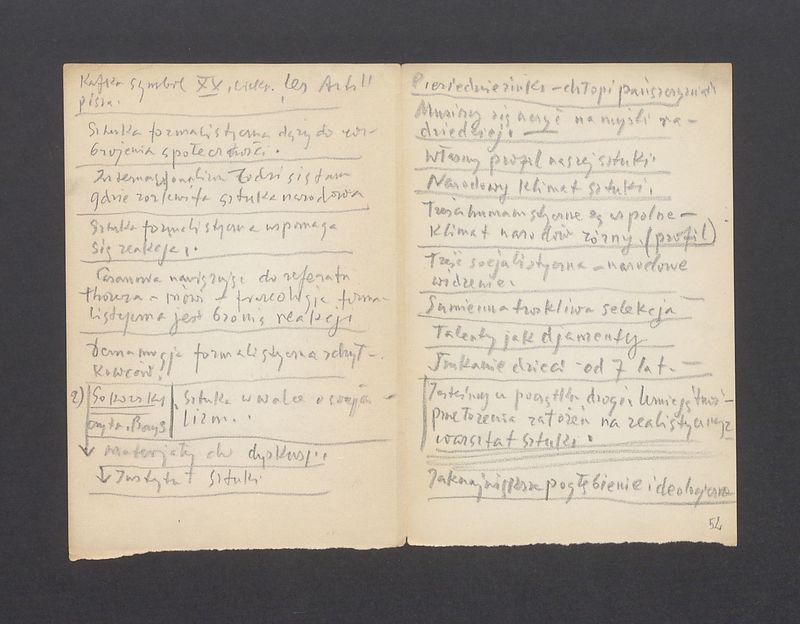 Kafka symbol XX, wieku. les Arts"
pisza.
Sztuka formalistyczna dąży do roz-
brojenia społeczności.
Internacjonalizm rodzi się tam
gdzie rozkwita sztuka narodowa
Sztuka formalistyczna wspomaga
się reakcją.
Casanowa nawiązując do referatu
Thoreza - mówi - frazeologia forma-
listyczna jest bronią reakcji
formalistyczna
2) Sokorski Sztuka w walce o socja-
lizm.
materiały do dyskusji.
Instytut Sztuki
chłopi pańszczyźniani
Musimy się uczyć na myśli ra-
dzieckiej.
Własny profil naszej sztuki.
Narodowy klimat sztuki.
Treści humanistyczne są wspólne -
klimat narodów różny (profil)
Treść socjalistyczna - narodowe
widzenie.
Sumienna troskliwa selekcja
Talenty jak djamenty
Szukanie dzieci od 7 lat. -
Jesteśmy u początku drogi. Umiejętność
przełożenia założeń na realistyczny
warsztat sztuki.
Jaknajwiększe pogłębienie ideologiczne
54